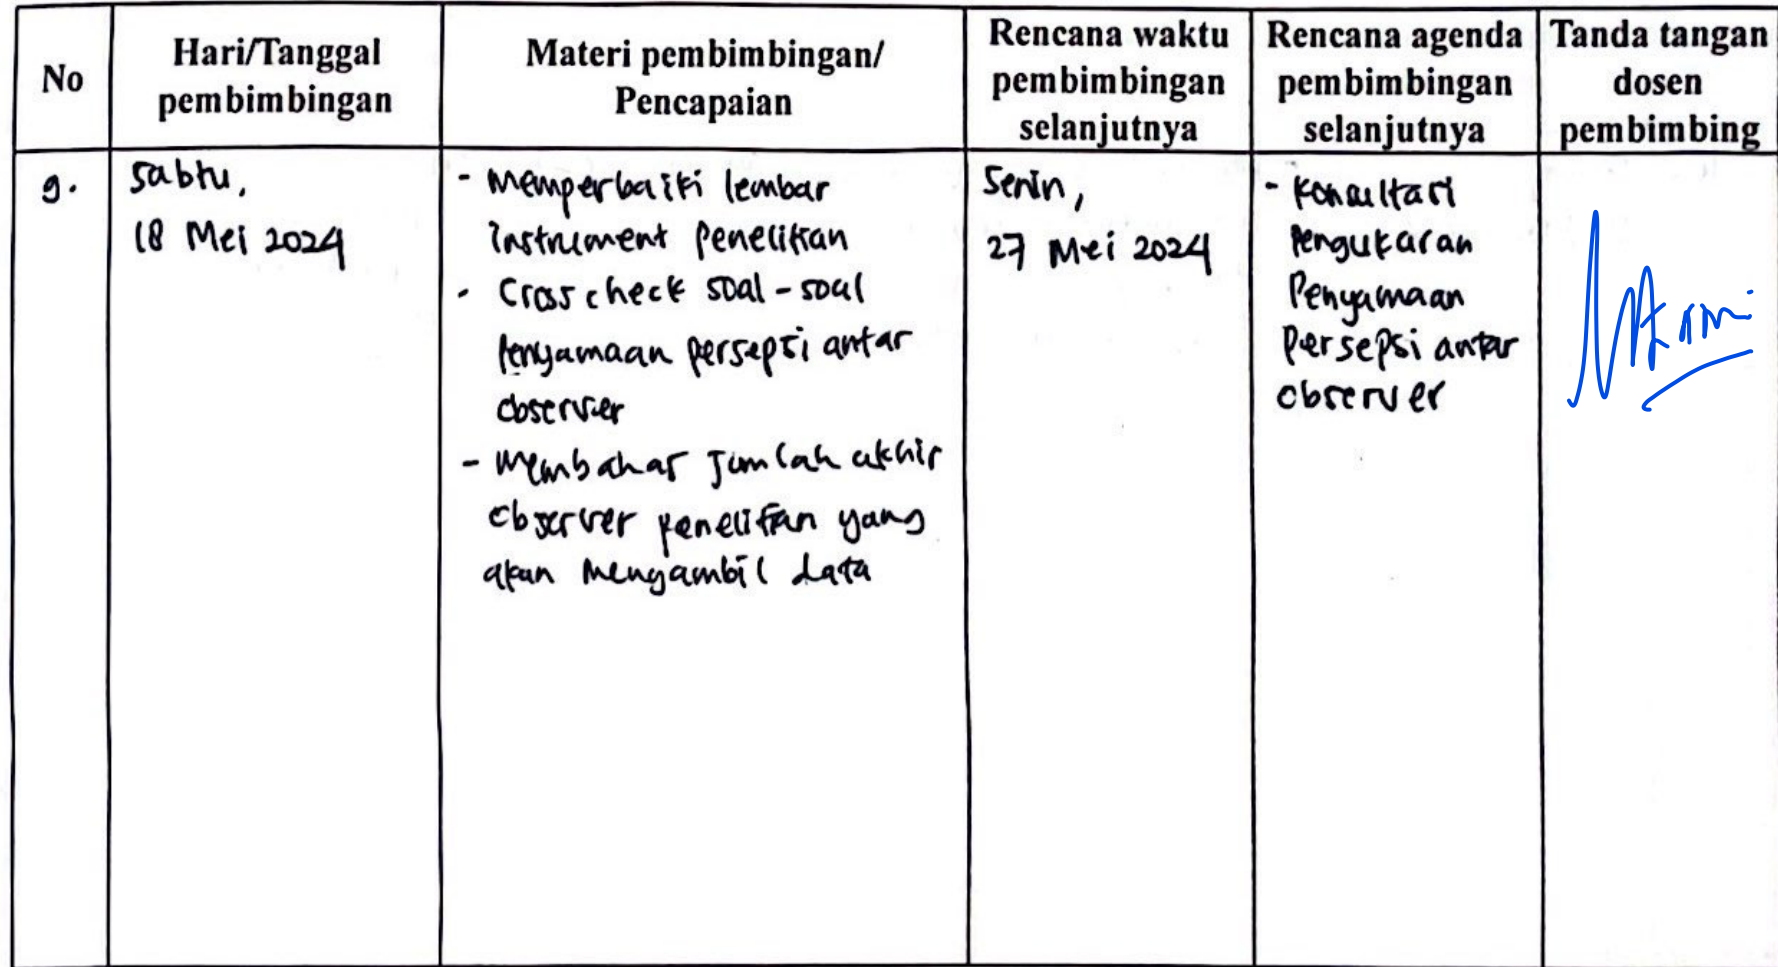 No
Hari/Tanggal
pembimbingan
Materi pembimbingan/
Pencapaian
Rencana waktu
pembimbingan
selanjutnya
Rencana agenda
pembimbingan
selanjutnya
Tanda tangan
dosen
pembimbing
9.
Sabtu,
18 Mei 2024
- Memperbaiki lembar
instrument penelitian
- Cross check soal-soal
Penyamaan persepsi antar
observer
- Membahas jumlah akhir
observer penelitian yang
akan mengambil data
Senin,
27 Mei 2024
- Konsultasi
Pengukuran
Penyamaan
Persepsi antar
observer